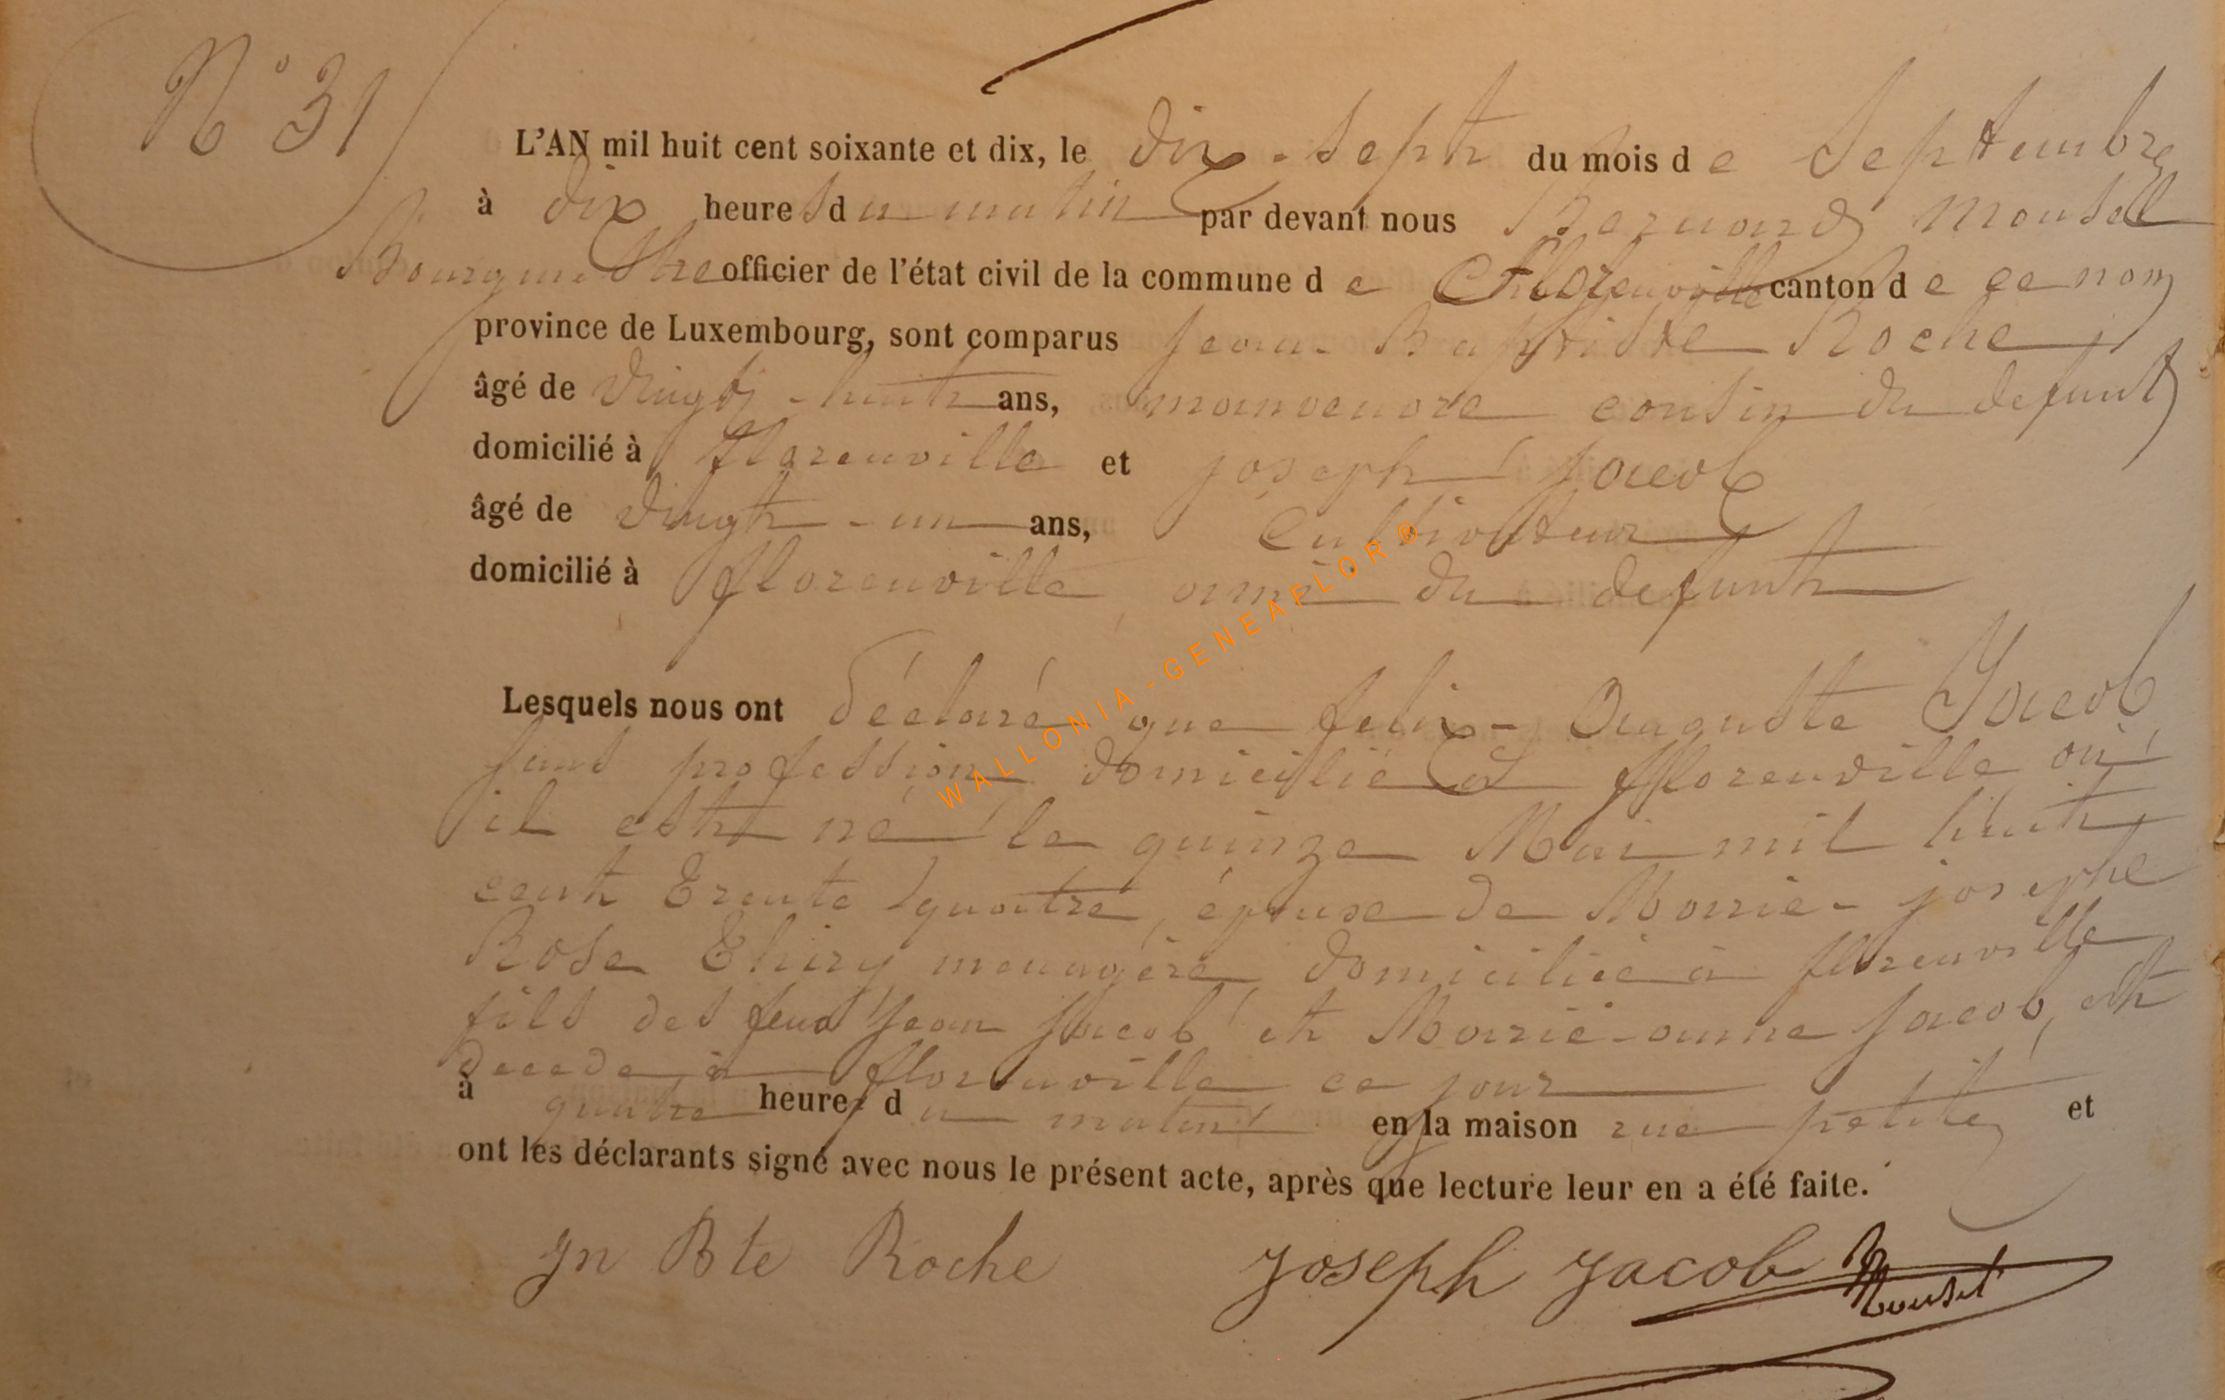 N° 31
L'AN mil huit cent soixante et dix, le dix-sept du mois de Septembre
à dix heures du matin par devant nous Bernard Mousel
Bourgmestre officier de l'état civil de la commune de Florenville canton de ce nom
province de Luxembourg, sont comparus jean-Baptiste Roche
âgé de vingt-huit ans, manoeuvre cousin du defunt
domicilié à florenville et joseph jacob
âgé de vingt-un ans, Cultivateur
domicilié à florenville ami du defunt
Lesquels nous ont déclaré que felix-Auguste Jacob
sans profession domicilié à florenville où
il est né le quinze Mai mil huit
cent trente quatre, épouse de Marie-josephe
Rose Thiry menagère domiciliée à florenville
fils des feus Jean Jacob et Marie-anne Jacob, est
decede à florenville ce jour
à quatre heures du matin en la maison rue petite, et
ont les déclarants signé avec nous le présent acte, après que lecture leur en a été faite.
Jn Bte Roche Joseph Jacob Mousel
WALLONIA-GENEAFLOR®